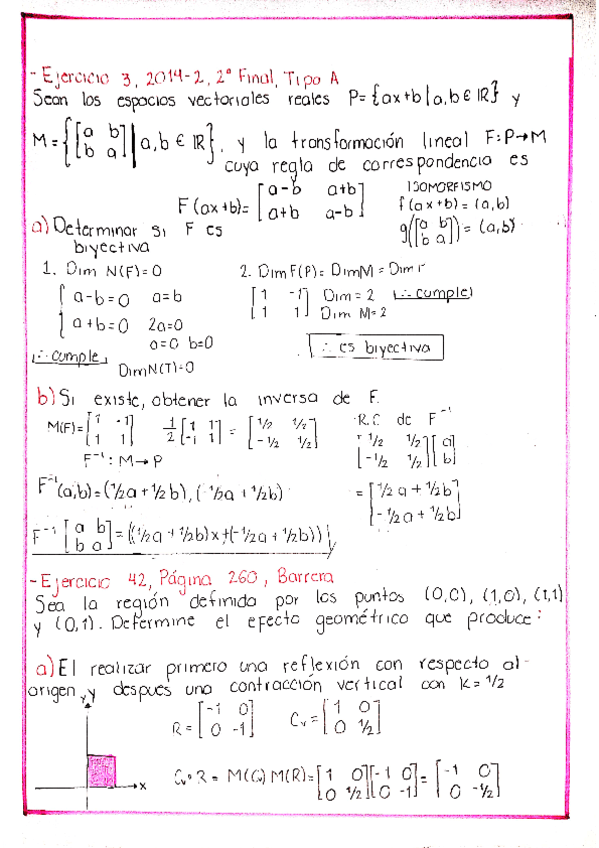 - Ejercicio 3, 2014-2, 2° Final, Tipo A
Sean los espacios vectoriales reales P={ax+b|a,b∈IR} y
M={[a b; b a]|a,b∈IR}. y la transformación lineal F:P→M
cuya regla de correspondencia es
F(ax+b)=[a-b a+b; a+b a-b]
ISOMORFISMO
f(ax+b)=(a,b)
g([a b; b a])=(a,b)
a) Determinar si F es
biyectiva
1. Dim N(F)=0
a-b=0 a=b
a+b=0 2a=0
a=0 b=0
∴ cumple
Dim N(T)=0
2. Dim F(P)= Dim M = Dim
[1 -1; 1 1] Dim=2 ∴ cumple
Dim M=2
∴ es biyectiva
b) Si existe, obtener la inversa de F.
M(F)=[1 -1; 1 1] 1/2[1 1; -1 1] = [1/2 1/2; -1/2 1/2]
F⁻¹: M→P
R.C de F⁻¹
[1/2 1/2; -1/2 1/2][a; b]
=[1/2a+1/2b; -1/2a+1/2b]
F⁻¹(a,b)=(1/2a+1/2b),(-1/2a+1/2b)
F⁻¹[a b; b a]=((1/2a+1/2b)x+(-1/2a+1/2b))
- Ejercicio 42, Página 260, Barrera
Sea la región definida por los puntos (0,0), (1,0), (1,1)
y (0,1). Determine el efecto geométrico que produce:
a) El realizar primero una reflexión con respecto al
origen y después una contracción vertical con K=1/2
y
x
R=[-1 0; 0 -1] Cv=[1 0; 0 1/2]
Cv∘R = M(C) M(R)=[1 0; 0 1/2][-1 0; 0 -1]=[-1 0; 0 -1/2]